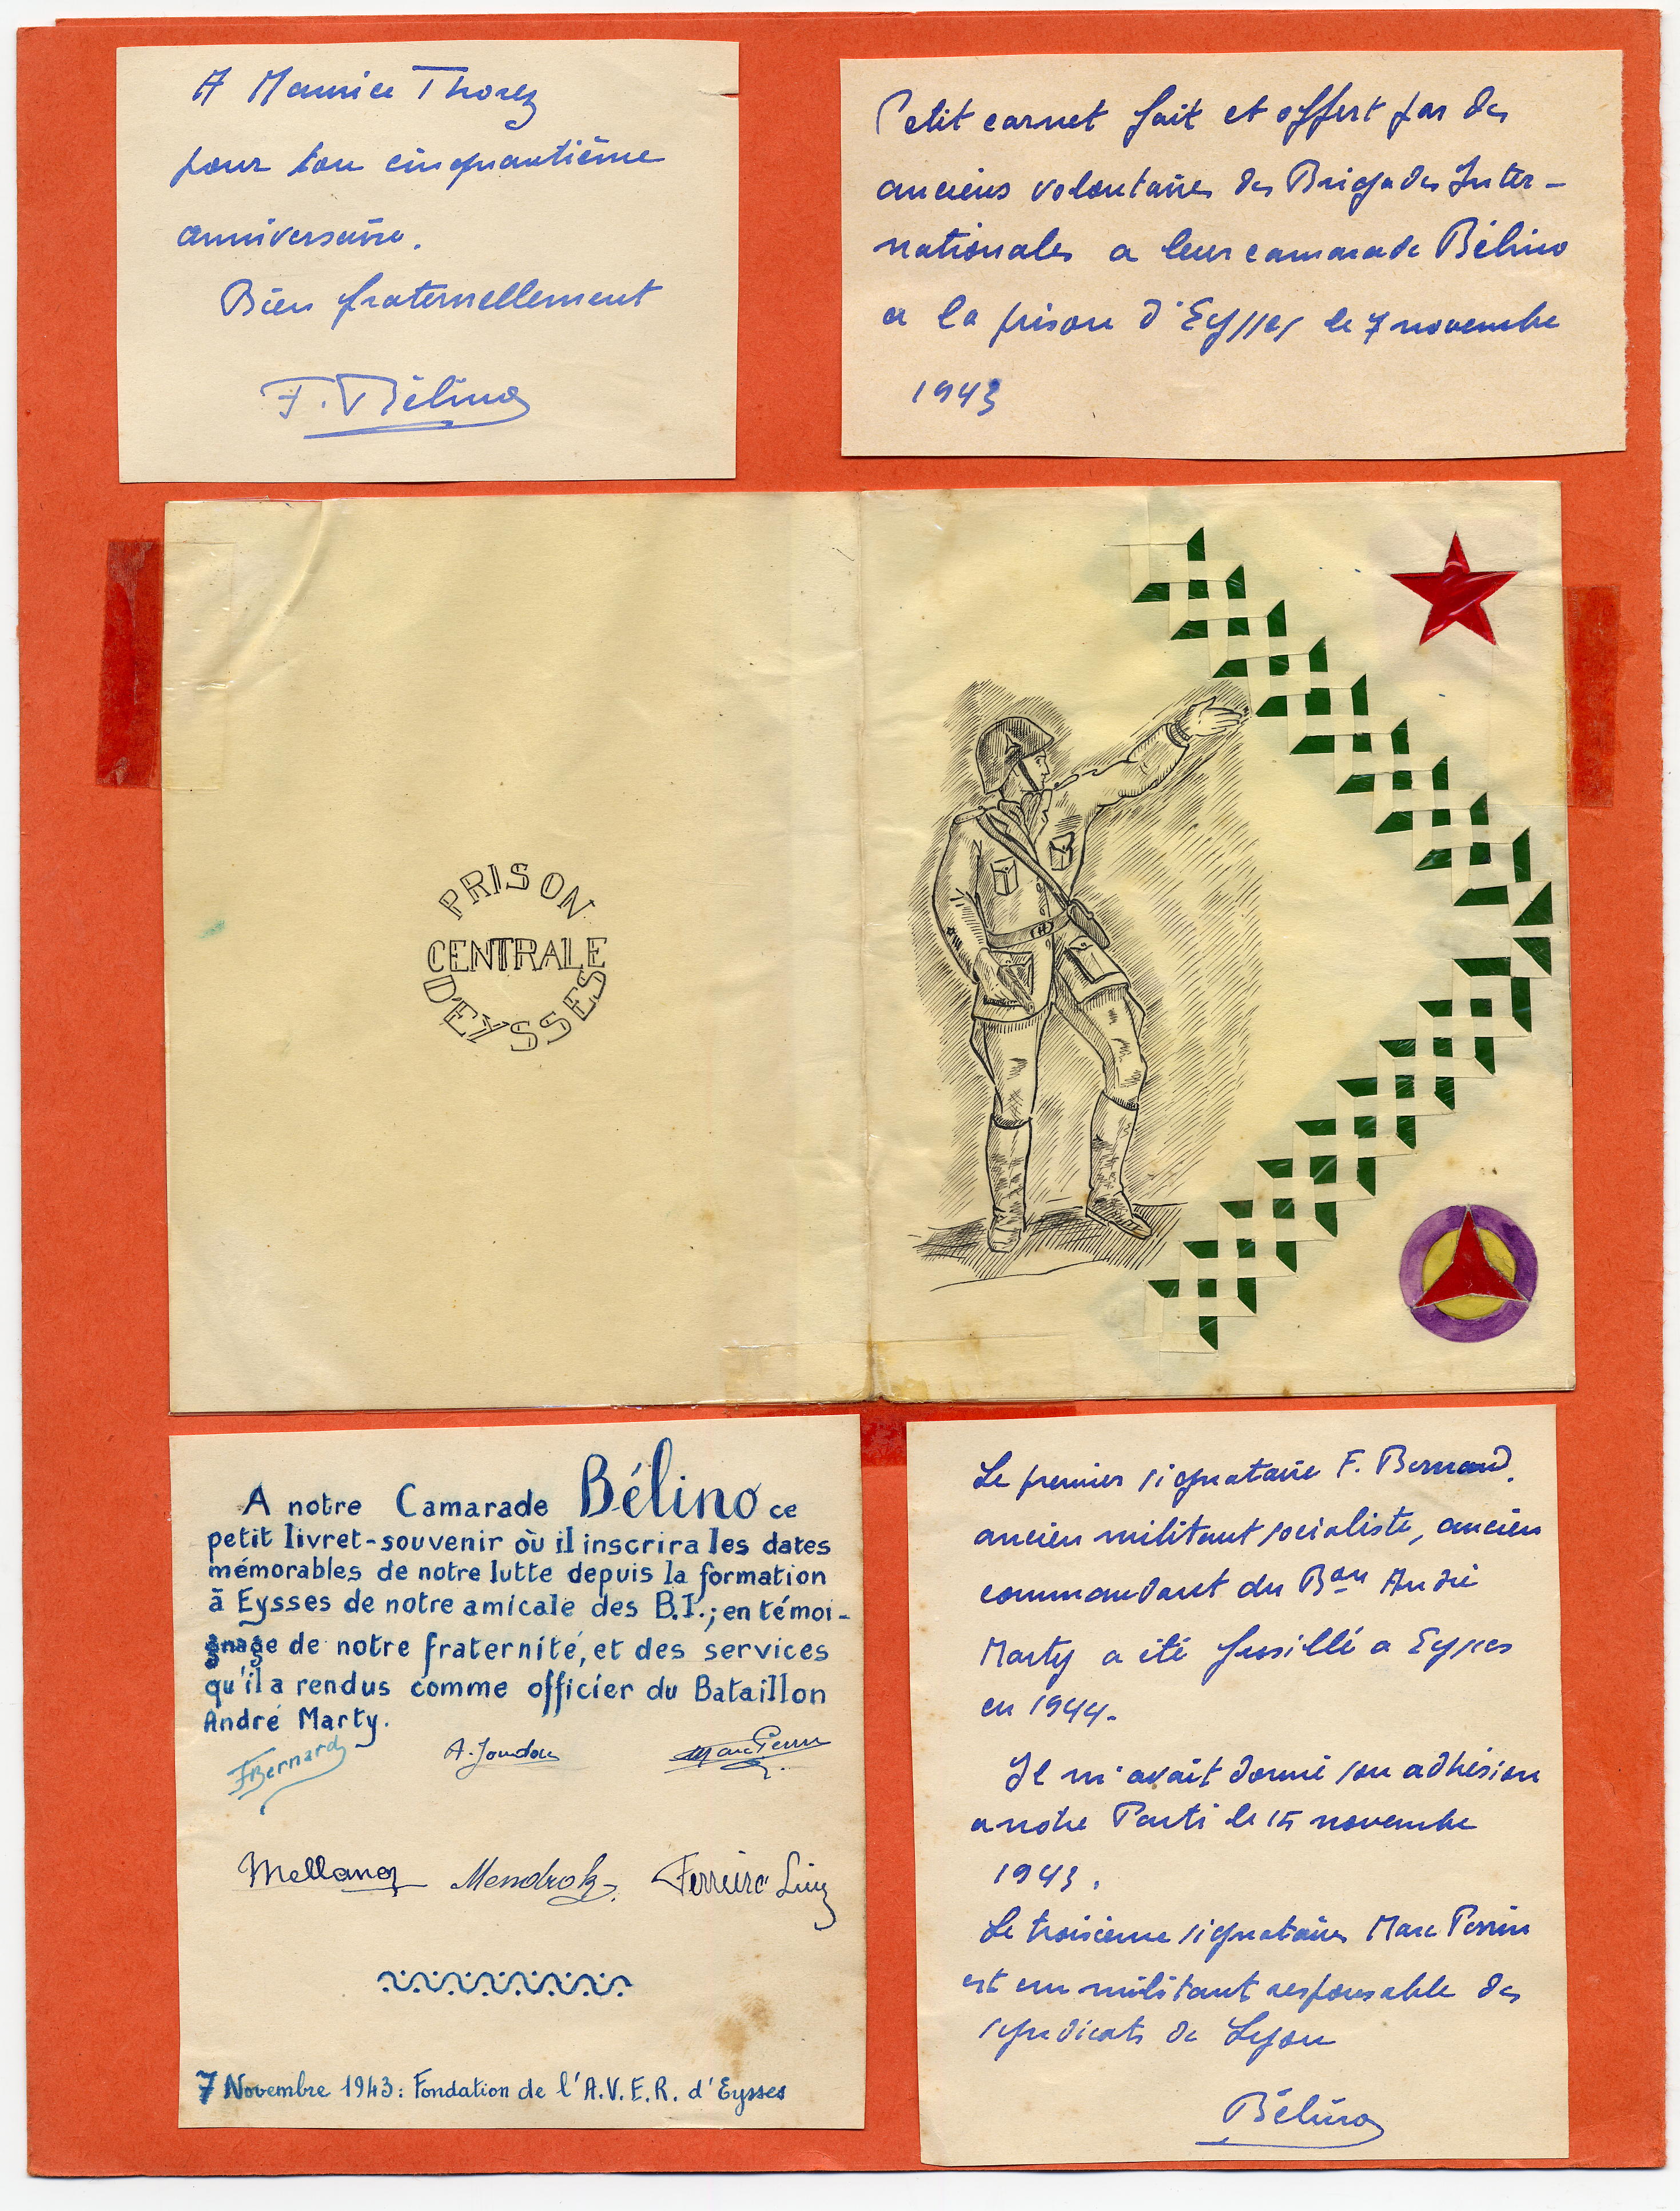 A Maurice Thorez
pour ton cinquantième
anniversaire.
Bien fraternellement
F. Bélino
Petit carnet fait et offert par des
anciens volontaires des Brigades Inter-
nationales a leur camarade Bélino
a la prison d'Eysses le 7 novembre
1943
PRISON
CENTRALE
D'EYSSES
A notre Camarade Bélino ce
petit livret-souvenir où il inscrira les dates
mémorables de notre lutte depuis la formation
à Eysses de notre amicale des B.I.; en témoi-
gnage de notre fraternité, et des services
qu'il a rendus comme officier du Bataillon
André Marty.
FBernard
A. Jou
Marc Perrin
Mellan
Mendrok
Ferreira Luiz
7 Novembre 1943: Fondation de l'A.V.E.R. d'Eysses
Le premier signataire F. Bernard,
ancien militant socialiste, ancien
commandant du Bon André
Marty a été fusillé a Eysses
en 1944.
Il m'avait donné son adhésion
a notre Parti le 15 novembre
1943.
Le troisieme signataire Marc Perrin
est un militant responsable des
syndicats de Lyon
Bélino